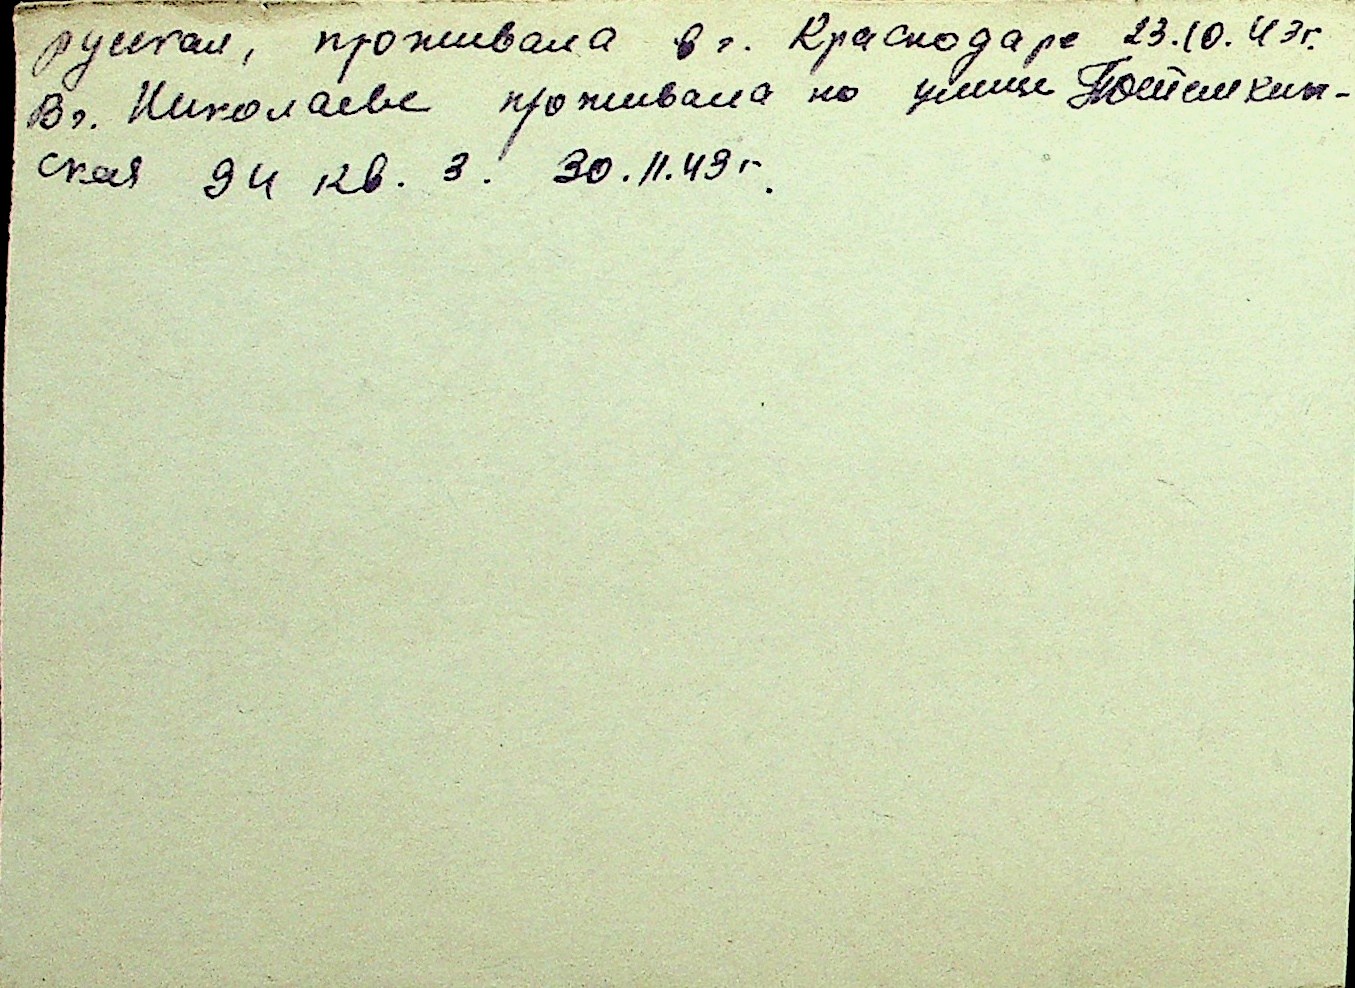 русская, проживала в г. Краснодаре 23.10.43г.
В г. Николаеве проживала по улице Потемкин-
ская 94 кв. 3. 30.11.43г.